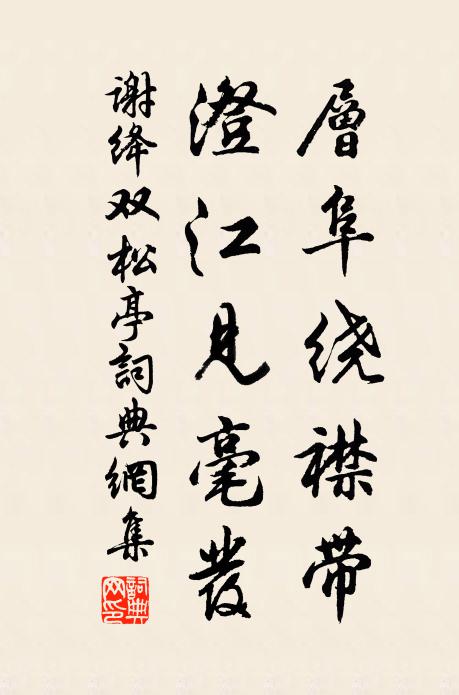 層阜绕襟带
澄江見毫發
谢绛双松亭詞典網集
詞典网印